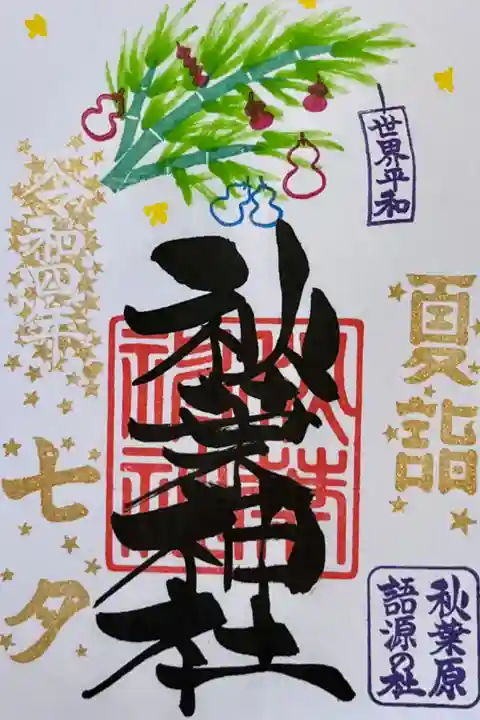 世界平和
夏詣
秋葉神社
秋葉神社
令和四年
七夕
秋葉原
語源の社